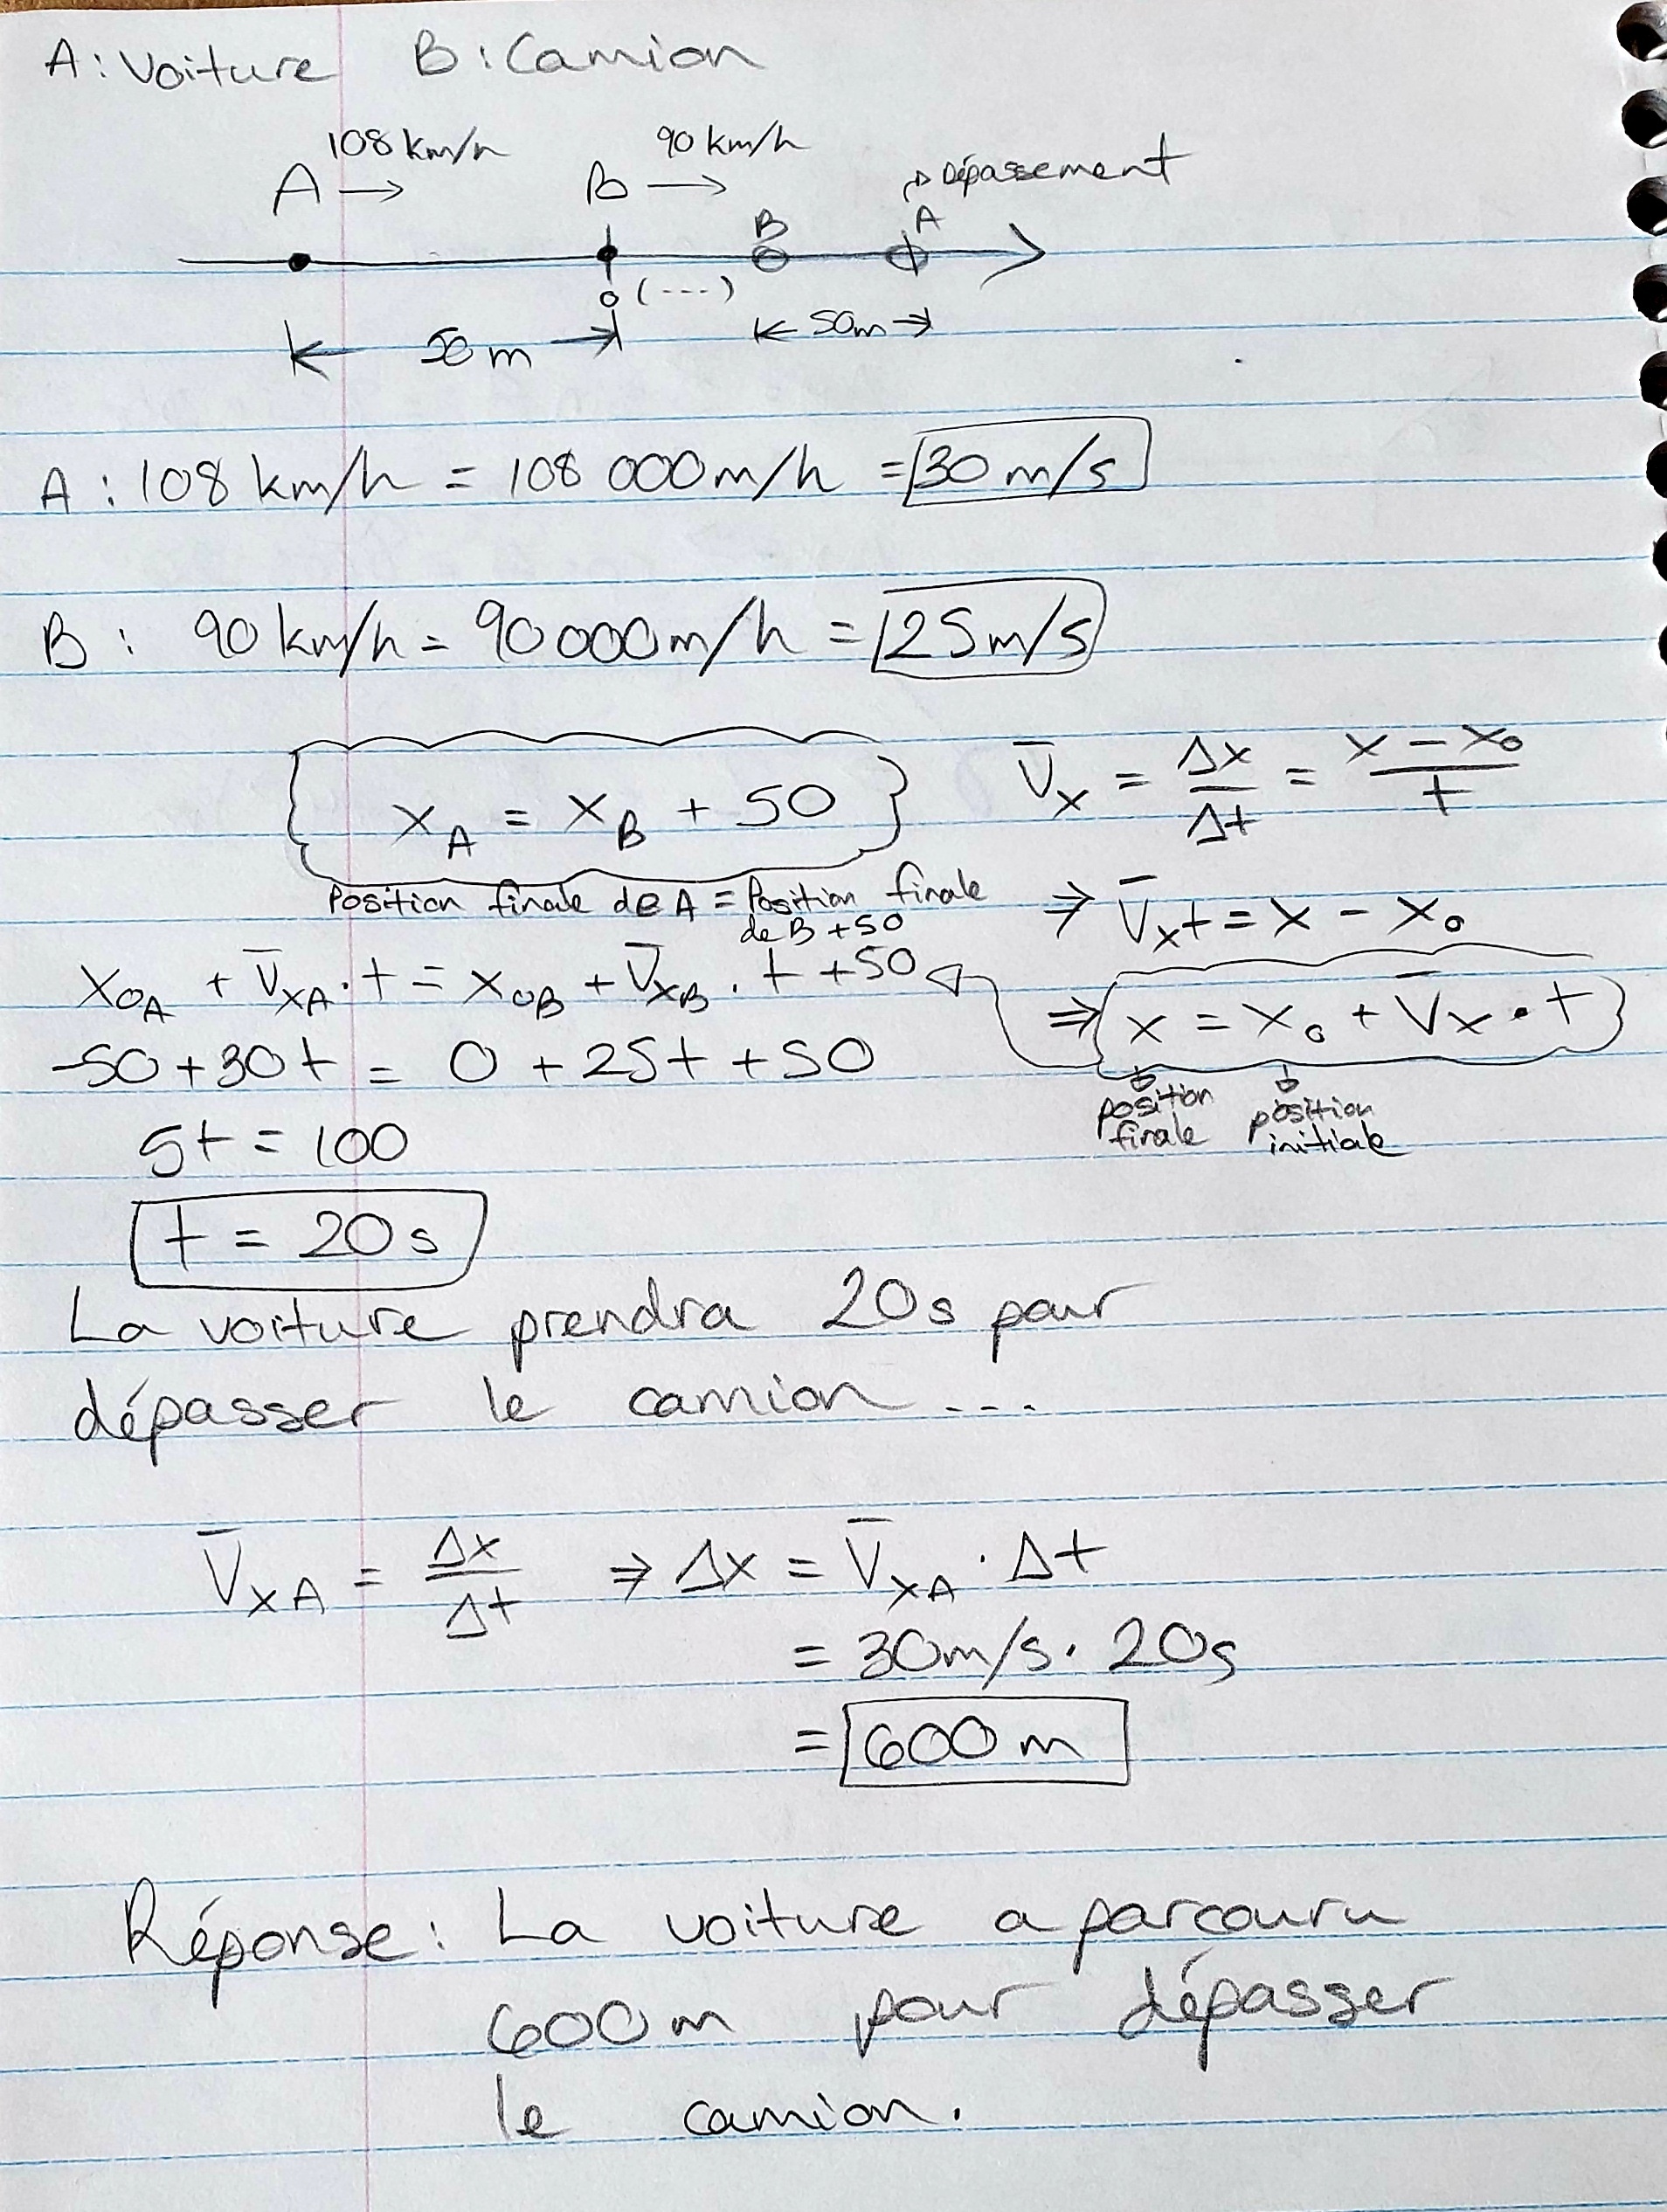 A : Voiture B : Camion
108 km/h 90 km/h
A → B → Dépassement
B A
0 (---)
50 m 50m
A : 108 km/h = 108 000 m/h = 30 m/s
B : 90 km/h = 90 000 m/h = 25 m/s
x_A = x_B + 50
Position finale de A = Position finale
de B + 50
V̄_x = Δx/Δt = (x - x₀)/t
⇒ V̄_x t = x - x₀
⇒ x = x₀ + V̄_x · t
position finale position initiale
x_0A + V̄_xA · t = x_0B + V̄_xB · t + 50
-50 + 30t = 0 + 25t + 50
5t = 100
t = 20 s
La voiture prendra 20s pour
dépasser le camion ...
V̄_xA = Δx/Δt ⇒ Δx = V̄_xA · Δt
= 30m/s · 20s
= 600 m
Réponse : La voiture a parcouru
600 m pour dépasser
le camion.